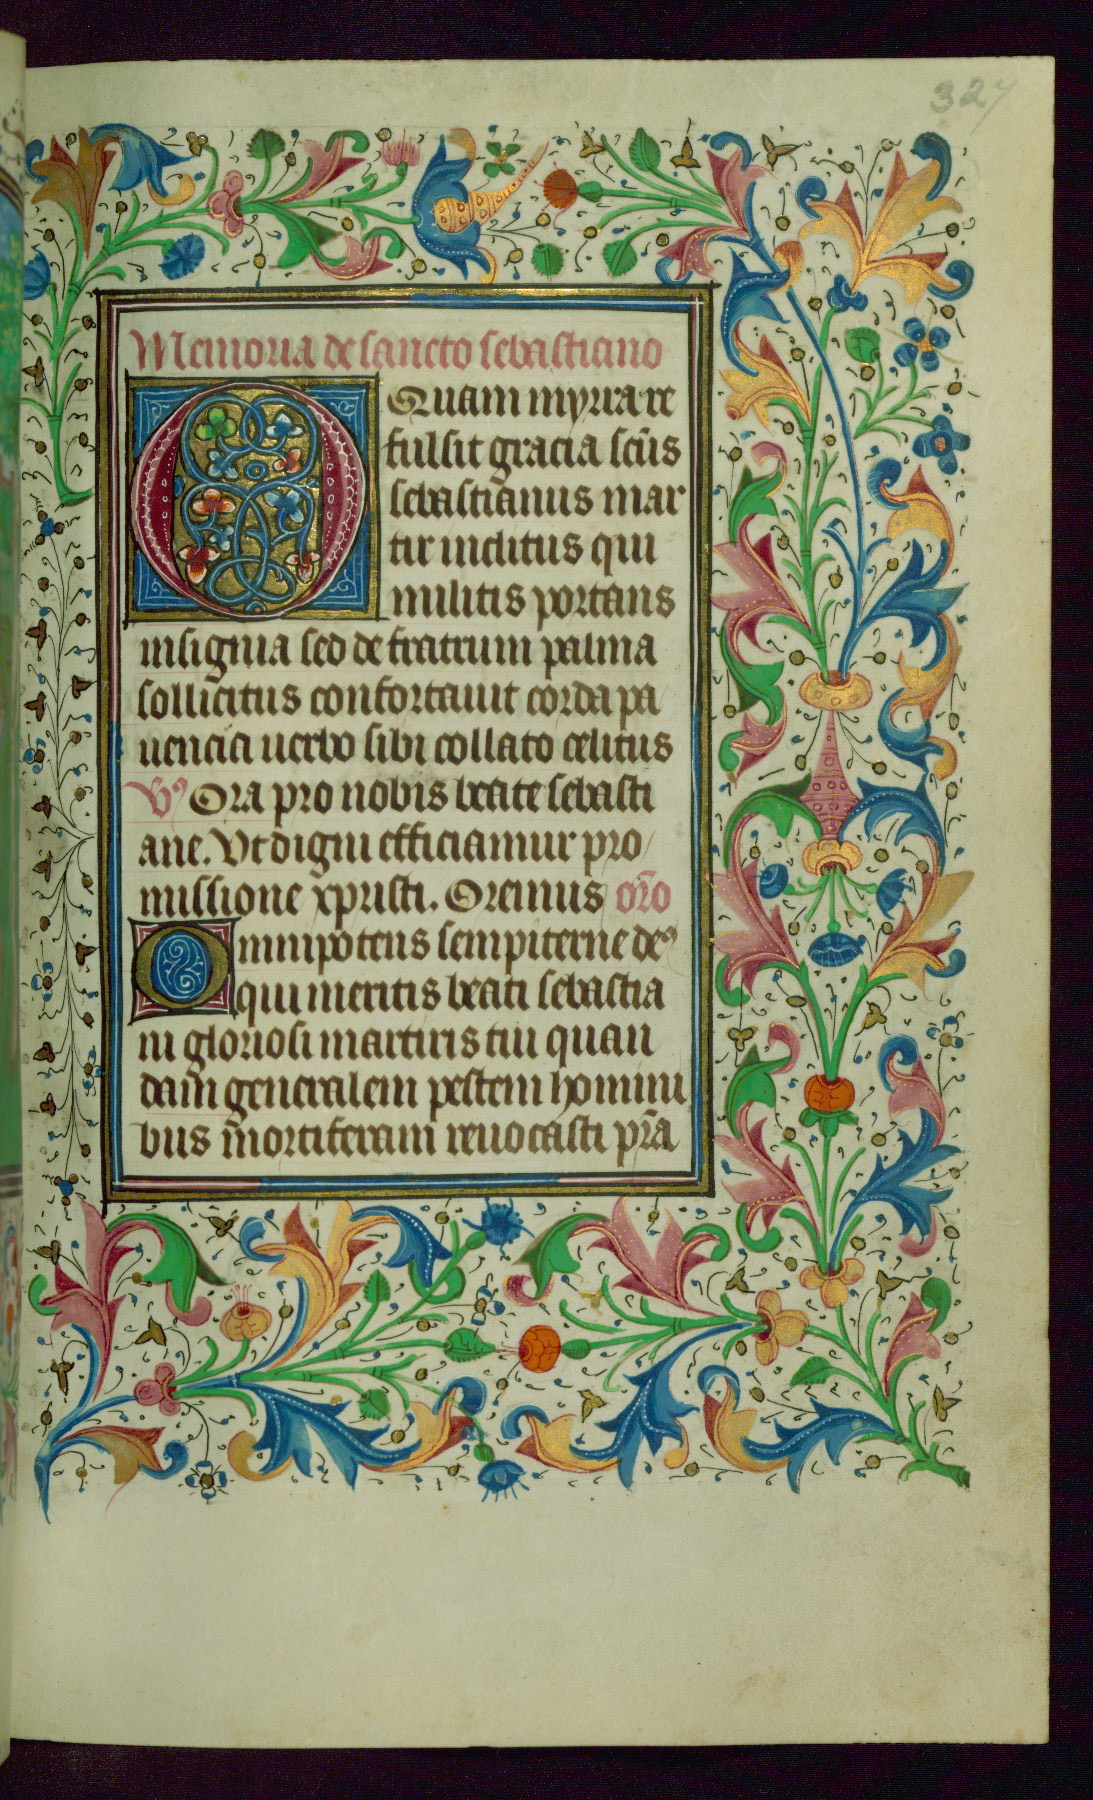 327
Memoria de sancto sebastiano
O Quam myrra re
fulsit gracia scūs
sebastianus mar
tir inclitus qui
militis portans
insignia sed de fratrum palma
sollicitus confortauit corda pa
uencia uerbo sibi collato celitus
V9 Ora pro nobis beate sebasti
ane. Vt digni efficiamur pro
missione xpristi. Oremus oro̅
Omnipotens sempiterne de9
qui meritis beati sebastia
ni gloriosi martiris tui quan
dam generalem pestem homini
bus mortiferam reuocasti pr̅a